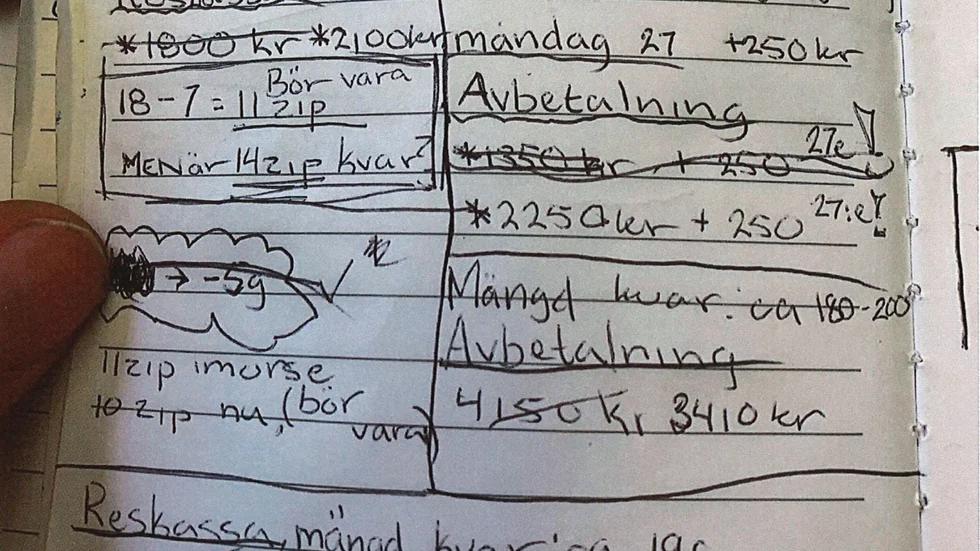 *1800 kr *2100kr
Bör vara
18-7=11 zip
MEN är 14 zip kvar?
→ -5g
11 zip imorse
10 zip nu, (bör
vara)
måndag 27 +250kr
Avbetalning
*1350 kr + 250 27e!
*2250kr + 250 27:e!
Mängd kvar: ca 180-200
Avbetalning
4150 kr 3410 kr
Reskassa, mängd kvar: ca